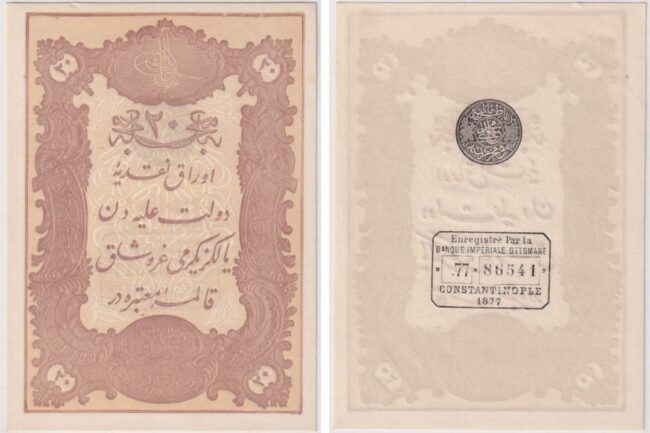 ٢٠ ٢٠
٢٠
اوراق نقدیهٔ
دولت علیه دن
یالکز یکرمی غروشلق
قائمهٔ معتبره در
٢٠ ٢٠
Enregistré Par la
BANQUE IMPERIALE OTTOMANE
77 86541
CONSTANTINOPLE
1877